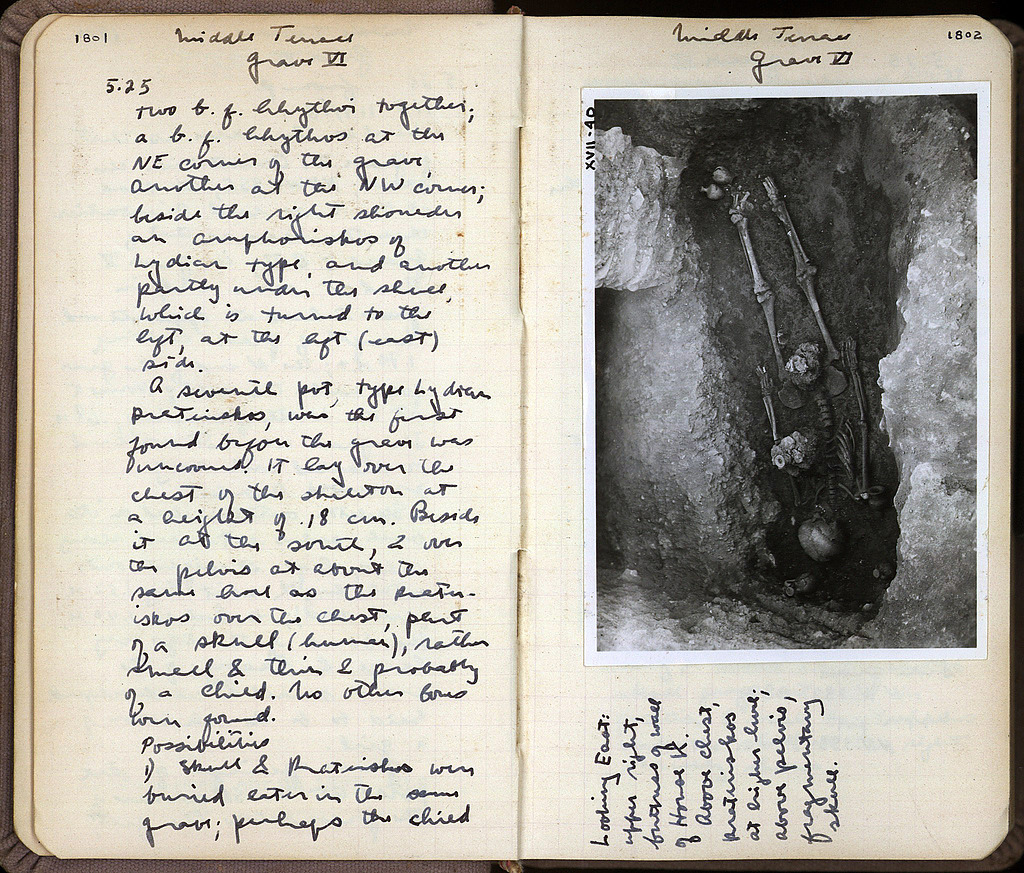 1801
Middle Terrace
Grave VI
5.25
two b. f. lekythoi together;
a b. f. lekythos at the
NE corner of the grave
another at the NW corner;
beside the right shoulder
an amphoriskos of
Lydian type, and another
partly under the skull,
which is turned to the
left, at the left (east)
side.
A seventh pot, type Lydian
krateriskos, was the first
found before the grave was
uncovered. It lay over the
chest of the skeleton at
a height of .18 cm. Beside
it at the south, & over
the pelvis at about the
same level as the krater-
iskos over the chest, part
of a skull (human), rather
small & thin & probably
of a child. No other bones
were found.
Possibilities
1) Skull & Krateriskos were
buried later in the same
grave; perhaps the child
Middle Terrace
Grave VI
1802
XVII.40
Looking East:
upper right,
buttress of wall
of House R.
Above chest,
krateriskos
at higher level;
above pelvis,
fragmentary
skull.